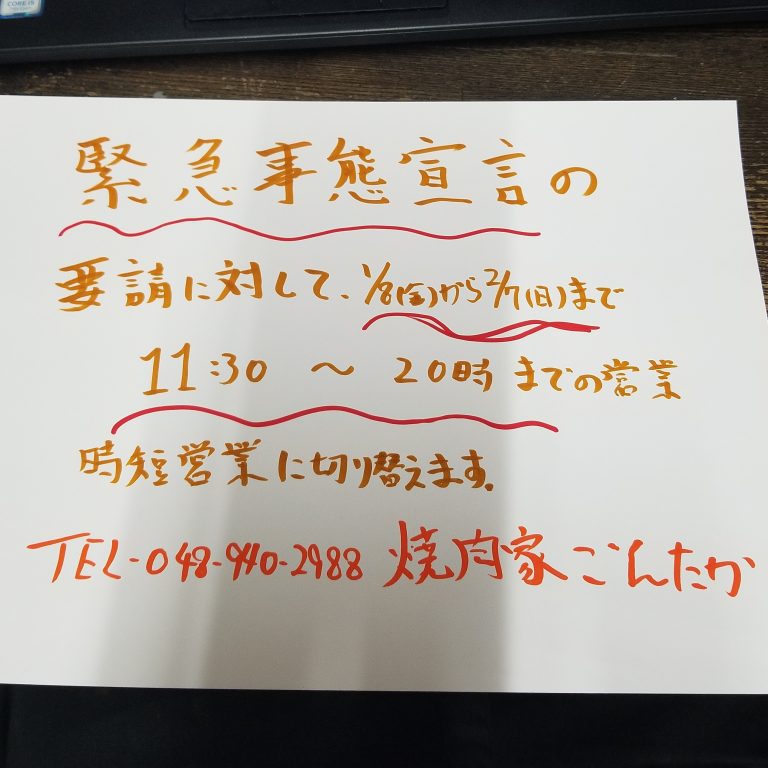 CORE i5
緊急事態宣言の
要請に対して、1/8(金)から2/7(日)まで
11:30 〜 20時までの営業
時短営業に切り替えます。
TEL-048-940-2988 焼肉家ごんたか